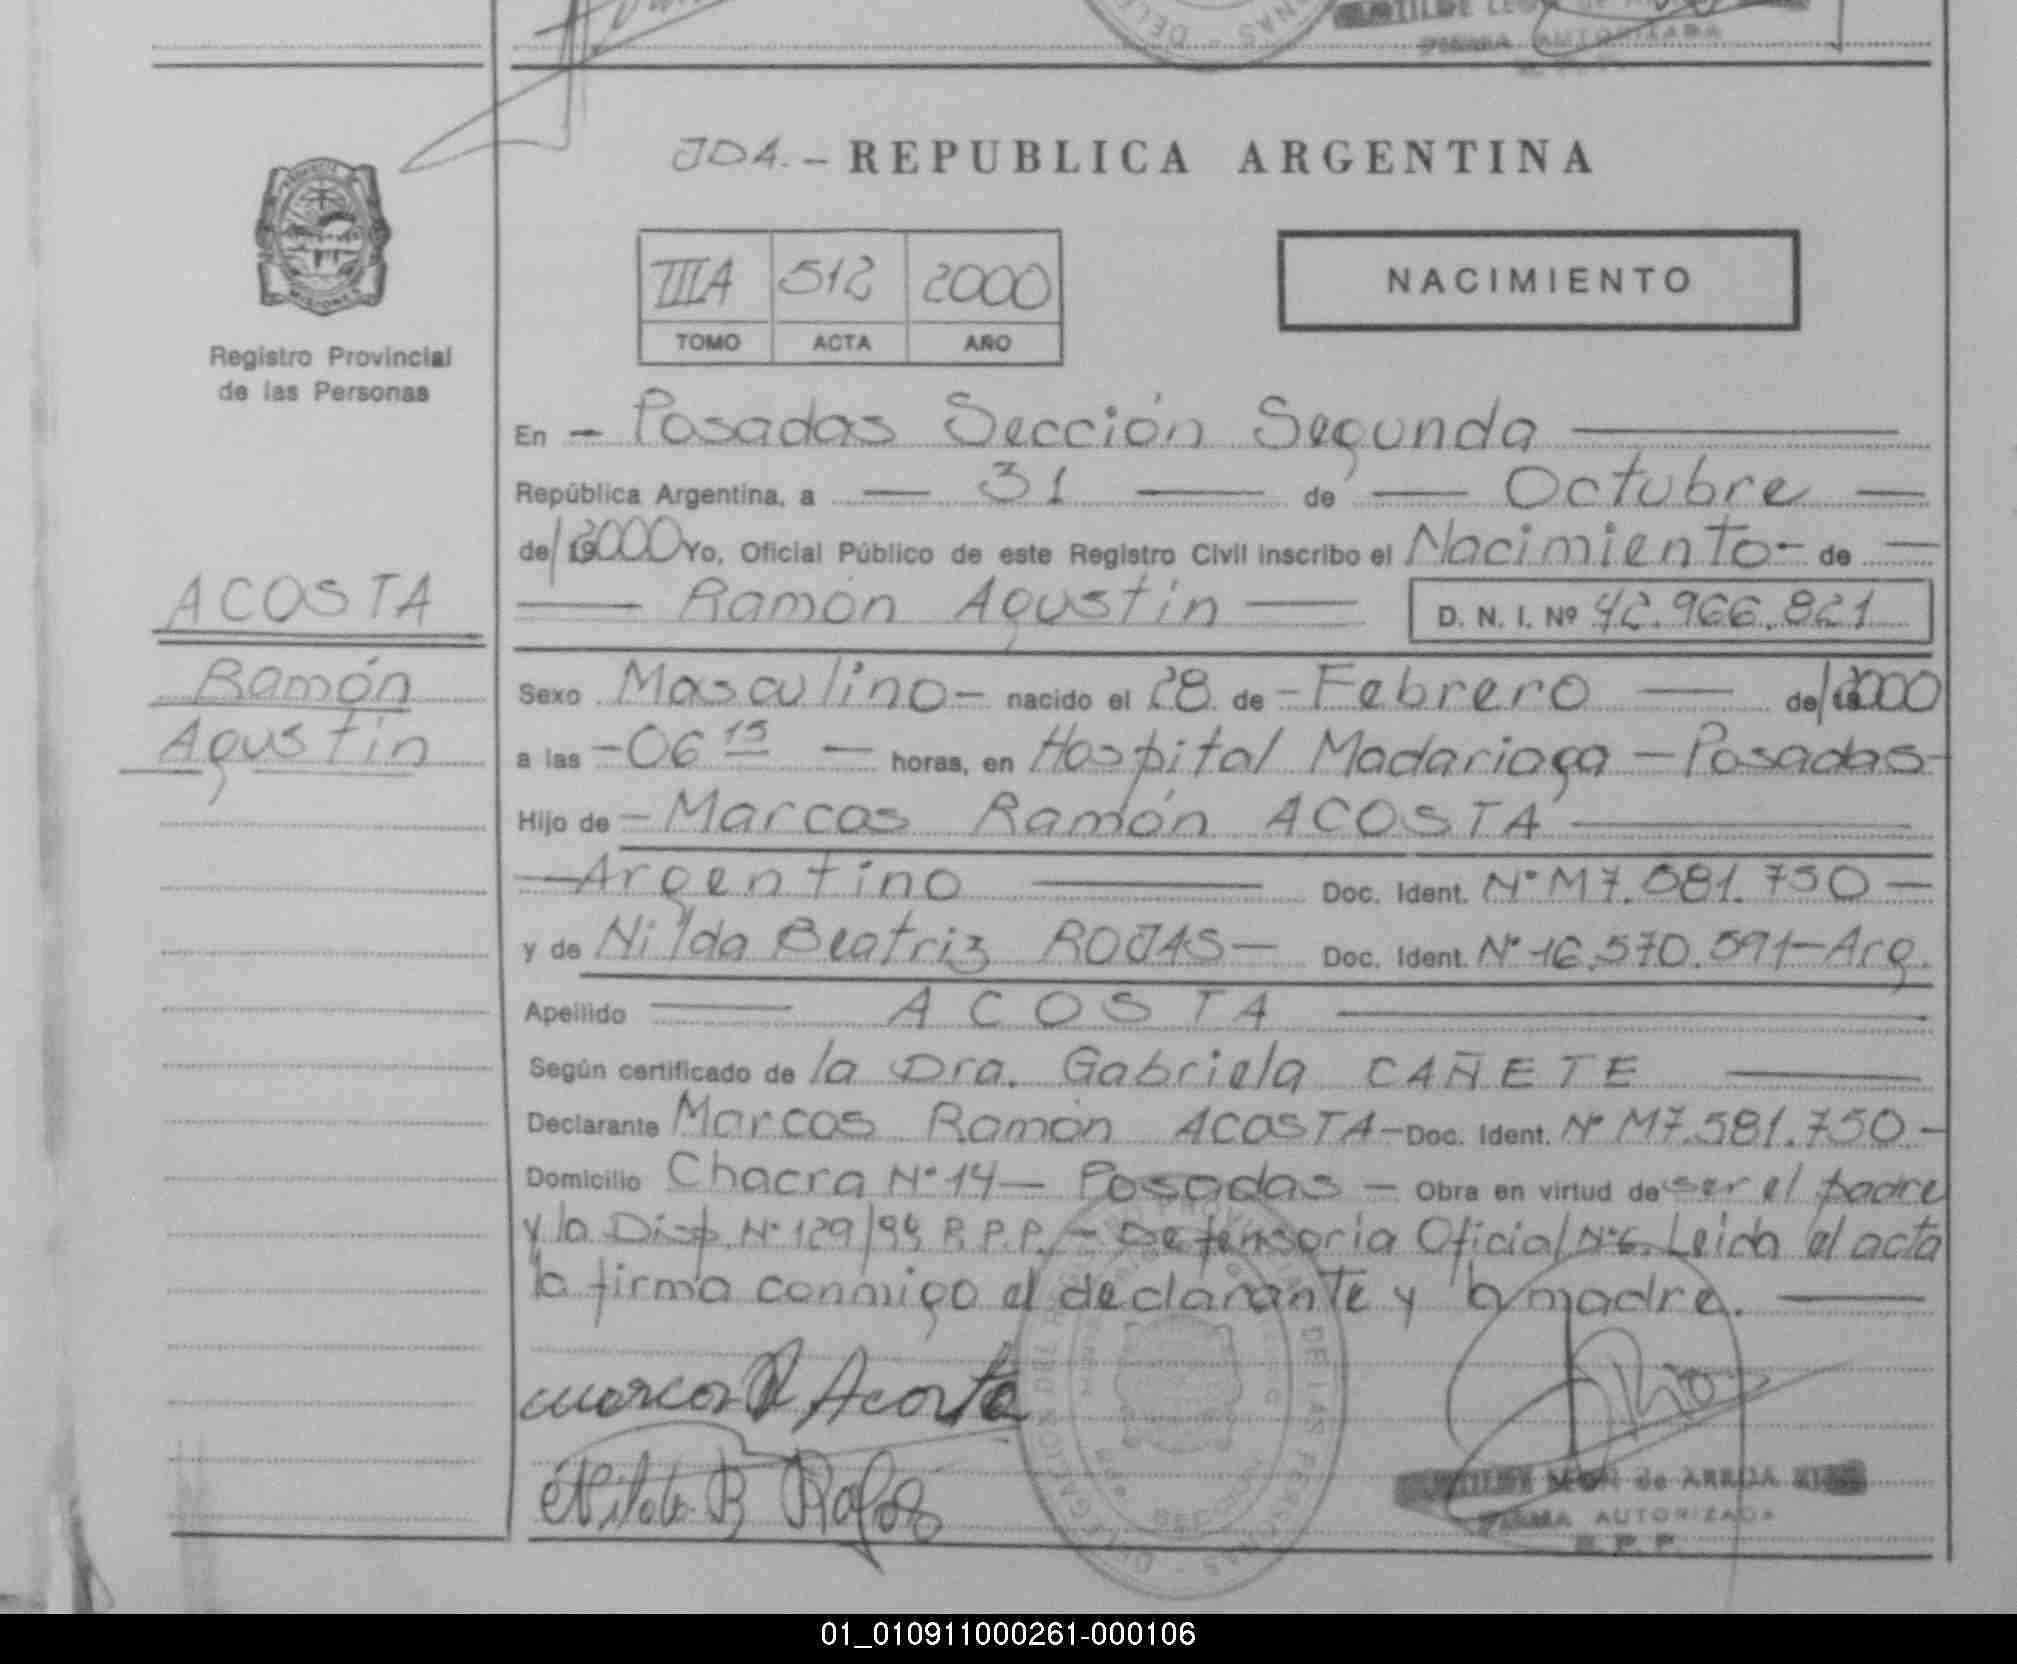 FIRMA AUTORIZADA
JDA.- REPUBLICA ARGENTINA
IIIA 512 2000
TOMO ACTA AÑO
NACIMIENTO
PROVINCIA
MISIONES
Registro Provincial
de las Personas
ACOSTA
Ramón
Agustín
En - Posadas Sección Segunda
República Argentina, a 31 de Octubre
de/ 19 2000 Yo, Oficial Público de este Registro Civil inscribo el Nacimiento - de
Ramón Agustín D. N. I. Nº 42.966.821
Sexo Masculino - nacido el 28 de - Febrero de/ 2000
a las - 06 15 horas, en Hospital Madariaga - Posadas -
Hijo de - Marcos Ramón ACOSTA
Argentino Doc. Ident. Nº M7.581.750
y de Nilda Beatriz ROJAS - Doc. Ident. Nº 16.570.591 - Arg.
Apellido ACOSTA
Según certificado de la Dra. Gabriela CAÑETE
Declarante Marcos Ramón ACOSTA - Doc. Ident. Nº M7.581.750 -
Domicilio Chacra Nº 14 - Posadas - Obra en virtud de ser el padre
y la Disp. Nº 129/94 R.P.P. - Defensoría Oficial Nº 6. Leída el acta
la firma conmigo el declarante y la madre.
marcos R Acosta
Nilda B Rojas
LEON de ARRUA
FIRMA AUTORIZADA
R. P. P.
01_010911000261-000106